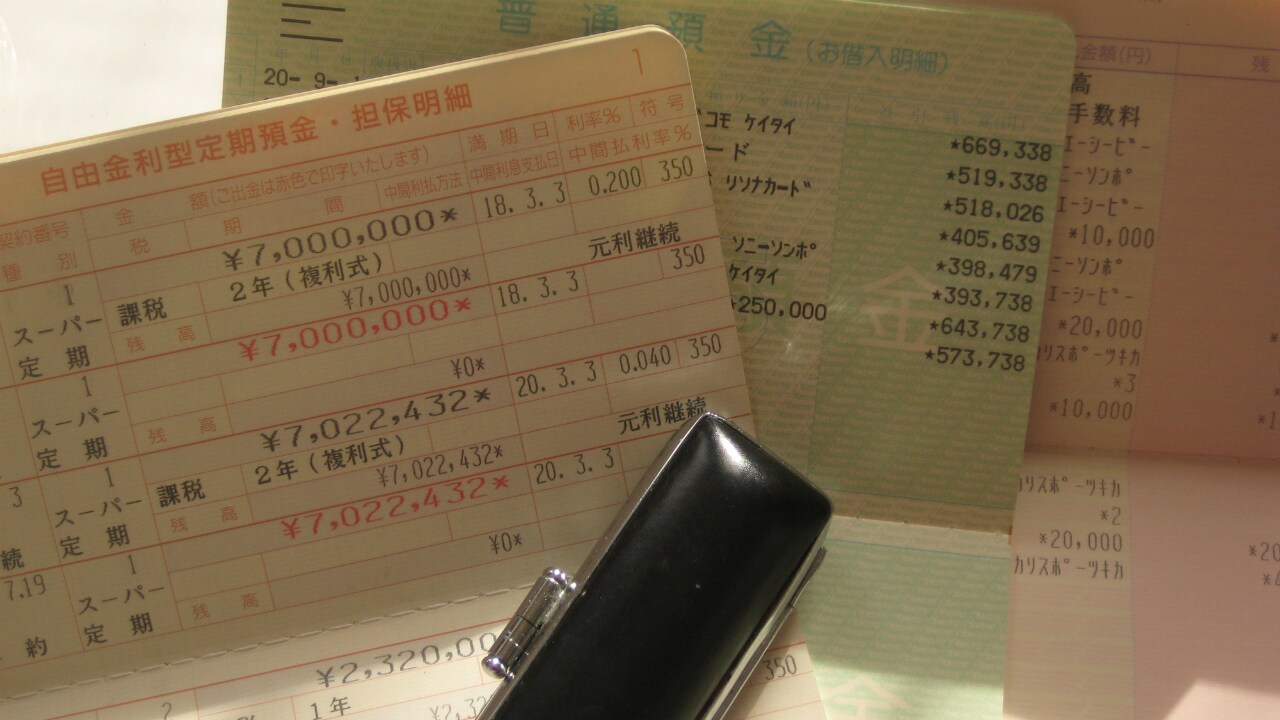 1
自由金利型定期預金・担保明細
契約番号 金 額(ご出金は赤色で印字いたします) 満期日 利率% 符号
種別 税 期間 中間利払方法 中間利息支払日 中間払利率%
¥7,000,000* 18. 3. 3 0.200 350
1 課税 2年(複利式) 元利継続
スーパー ¥7,000,000* 18. 3. 3 350
定期 残高 ¥7,000,000*
¥0*
1 ¥7,022,432* 20. 3. 3 0.040 350
スーパー 残高 2年(複利式) 元利継続
定期 課税 ¥7,022,432* 20. 3. 3
3 1 残高 ¥7,022,432*
スーパー ¥0*
続 定期
7.19 1
スーパー 残高
約 定期
¥2,320,00
2 1年 350
¥2,32
普通預金(お借入明細)
20- 9-
コモ ケイタイ *669,338
ード *519,338
リソナカード *518,026
*405,639
ソニーソンポ *398,479
ケイタイ *393,738
*250,000 *643,738
*573,738
金
金額(円) 残
高
手数料
エーシービー
ニーソンポ
エーシービー
*10,000
ニーソンポ
エーシービー
*20,000
リスポーツキカ
*3
*10,000
カリスポーツキカ
*2
*20,000
カリスポーツキカ
金